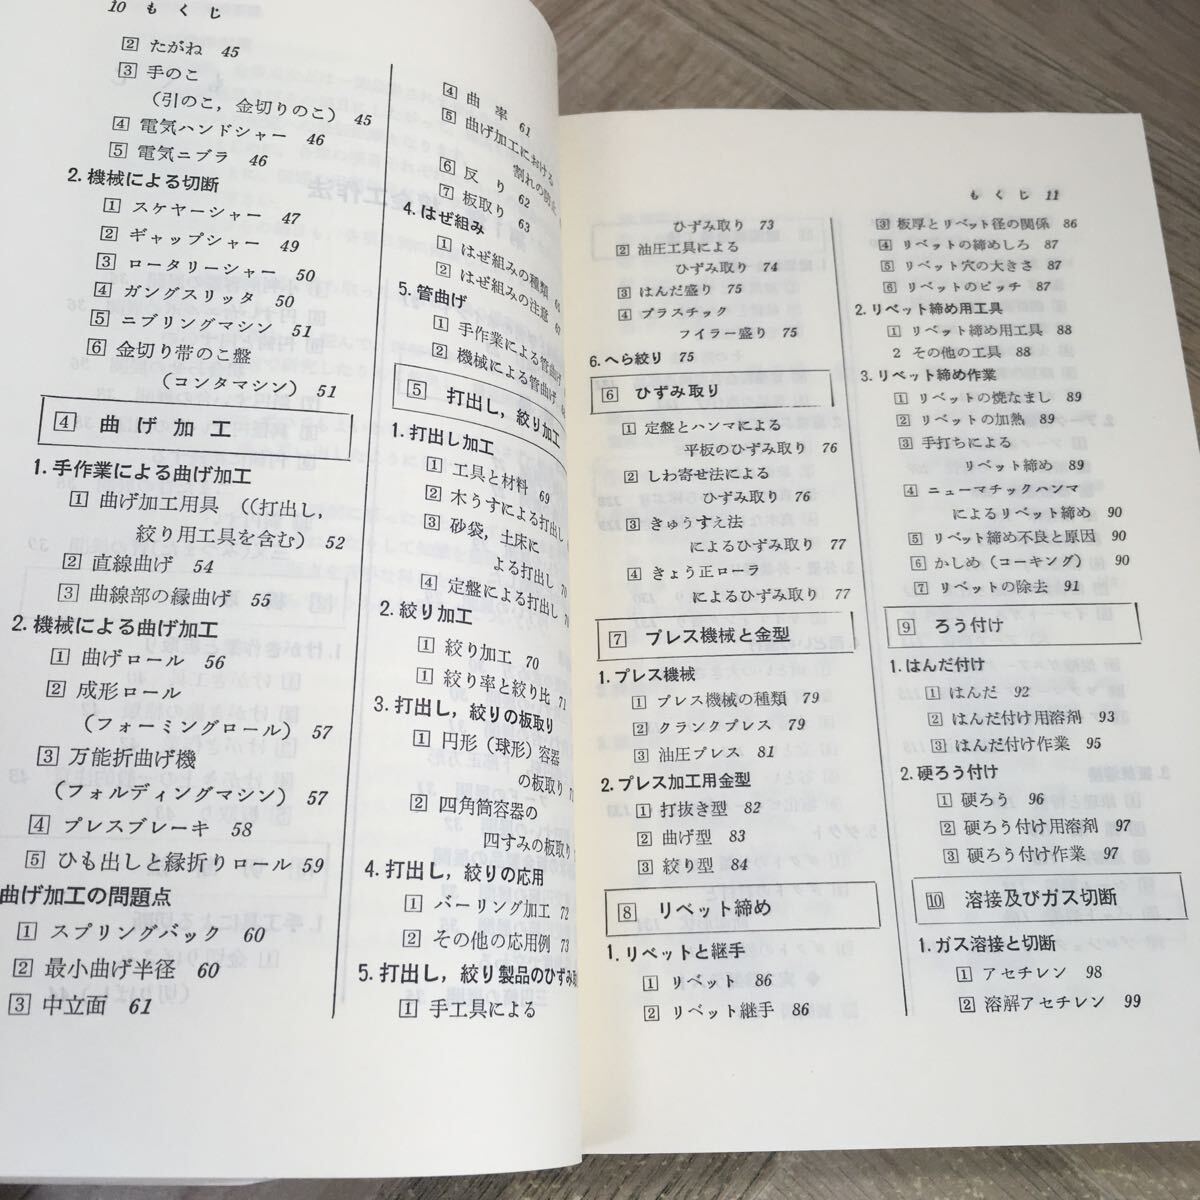 10 もくじ
2 たがね 45
3 手のこ
（引のこ，金切りのこ） 45
4 電気ハンドシャー 46
5 電気ニブラ 46
2. 機械による切断
1 スケヤーシャー 47
2 ギャップシャー 49
3 ロータリーシャー 50
4 ガングスリッタ 50
5 ニブリングマシン 51
6 金切り帯のこ盤
（コンタマシン） 51
4 曲げ加工
1. 手作業による曲げ加工
1 曲げ加工用具 （（打出し，
絞り用工具を含む） 52
2 直線曲げ 54
3 曲線部の縁曲げ 55
2. 機械による曲げ加工
1 曲げロール 56
2 成形ロール
（フォーミングロール） 57
3 万能折曲げ機
（フォルディングマシン） 57
4 プレスブレーキ 58
5 ひも出しと縁折りロール 59
曲げ加工の問題点
1 スプリングバック 60
2 最小曲げ半径 60
3 中立面 61
4 曲率 61
5 曲げ加工における
割れの防止
6 反り 62
7 板取り 63
4. はぜ組み
1 はぜ組みの種類
2 はぜ組みの注意
5. 管曲げ
1 手作業による管曲げ
2 機械による管曲げ
5 打出し，絞り加工
1. 打出し加工
1 工具と材料 69
2 木うすによる打出し
3 砂袋，土床に
よる打出し 70
4 定盤による打出し
2. 絞り加工
1 絞り加工 70
1 絞り率と絞り比 71
3. 打出し，絞りの板取り
1 円形（球形）容器
の板取り
2 四角筒容器の
四すみの板取り
4. 打出し，絞りの応用
1 バーリング加工 72
2 その他の応用例 73
5. 打出し，絞り製品のひずみ
1 手工具による
もくじ 11
ひずみ取り 73
2 油圧工具による
ひずみ取り 74
3 はんだ盛り 75
4 プラスチック
フイラー盛り 75
6. へら絞り 75
6 ひずみ取り
1 定盤とハンマによる
平板のひずみ取り 76
2 しわ寄せ法による
ひずみ取り 76
3 きゅうすえ法
によるひずみ取り 77
4 きょう正ローラ
によるひずみ取り 77
7 プレス機械と金型
1. プレス機械
1 プレス機械の種類 79
2 クランクプレス 79
3 油圧プレス 81
2. プレス加工用金型
1 打抜き型 82
2 曲げ型 83
3 絞り型 84
8 リベット締め
1. リベットと継手
1 リベット 86
2 リベット継手 86
3 板厚とリベット径の関係 86
4 リベットの締めしろ 87
5 リベット穴の大きさ 87
6 リベットのピッチ 87
2. リベット締め用工具
1 リベット締め用工具 88
2 その他の工具 88
3. リベット締め作業
1 リベットの焼なまし 89
2 リベットの加熱 89
3 手打ちによる
リベット締め 89
4 ニューマチックハンマ
によるリベット締め 90
5 リベット締め不良と原因 90
6 かしめ（コーキング） 90
7 リベットの除去 91
9 ろう付け
1. はんだ付け
1 はんだ 92
2 はんだ付け用溶剤 93
3 はんだ付け作業 95
2. 硬ろう付け
1 硬ろう 96
2 硬ろう付け用溶剤 97
3 硬ろう付け作業 97
10 溶接及びガス切断
1. ガス溶接と切断
1 アセチレン 98
2 溶解アセチレン 99